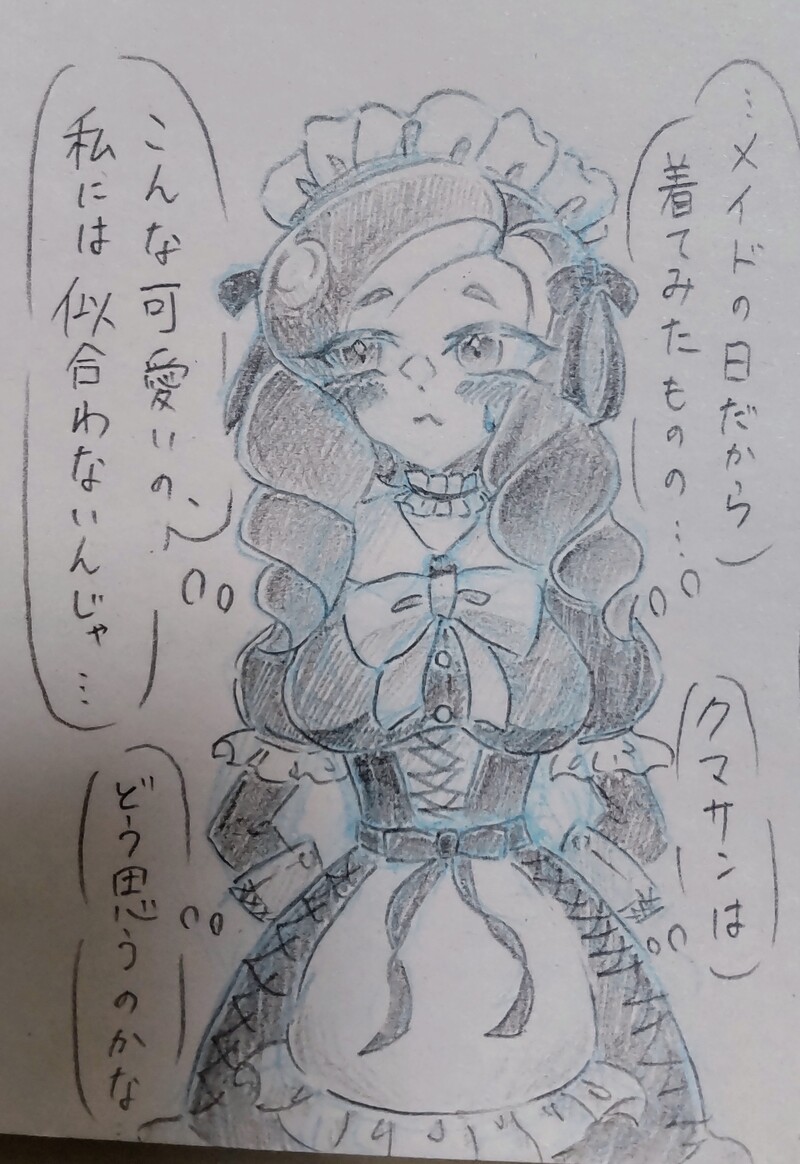 …メイドの日だから
着てみたものの…
こんな可愛いの、
私には似合わないんじゃ…
クマサンは
どう思うのかな…